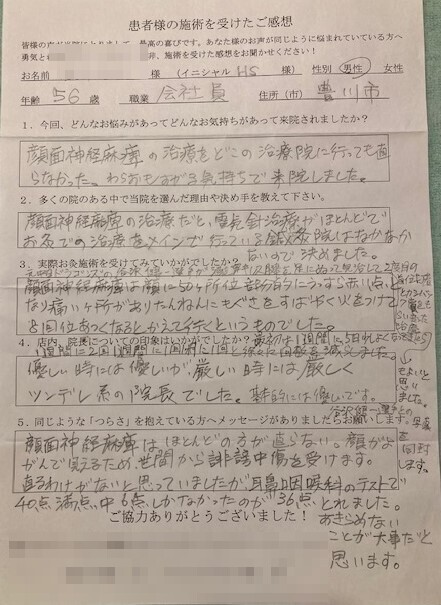 患者様の施術を受けたご感想
皆様の声が当院にとりまして、最高の喜びです。あなた様のお声が同じように悩まれていている方へ
勇気とれ 非、施術を受けた感想をお聞かせください!
お名前 様 (イニシャル HS 様) 性別 男性 女性
年齢 56 歳 職業 会社員 住所(市) 豊川市
1.今回、どんなお悩みがあってどんなお気持ちがあって来院されましたか?
顔面神経麻痺の治療をどこの治療院に行っても直
らなかった。わらおもすがる気持ちで来院しました。
2.多くの院のある中で当院を選んだ理由や決め手を教えて下さい。
顔面神経麻痺の治療だと、電気針治療がほとんどで
お灸での治療をメインで行っている鍼灸院はなかなか
ないので決めました。
3.実際お灸施術を受けてみていかがでしたか?
顔面神経麻痺は顔に50ヶ所位部分的にうっすら赤い点に
なり痛い ヶ所がありたんねんにもぐさをすばやく火をつけて
8回位あつくなるとかえて行くというものでした。
4.店内、院長についての印象はいかがでしたか?
最初は1週間に5日れんぞく
1週間に2回1週間に1回
と徐々に回数を減らしました。
優しい時には優しいが、厳しい時には厳しく
ツンデレ系の院長でした。基本的には優しいです。
5.同じような「つらさ」を抱えている方へメッセージがありましたらお願いします。
顔面神経麻痺はほとんどの方が直らない。顔がよ
がんで見えるため、世間から誹謗中傷を受けます。
直るわけがないと思っていましたが、耳鼻咽喉科のテストで
40点満点中6点しかなかったのが36点とれました。
あきらめない
ことが大事だと
思います。
ご協力ありがとうございました!